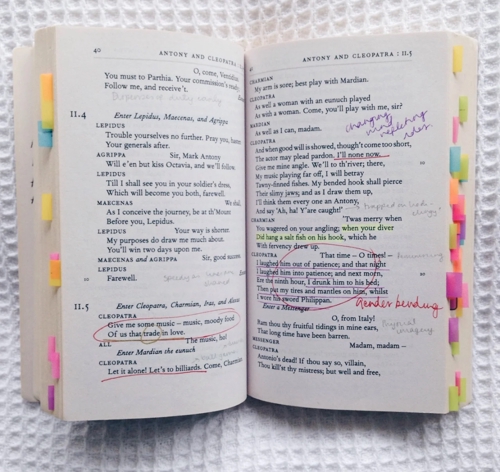 40
ANTONY AND CLEOPATRA
O, come, Ventidius
You must to Parthia. Your commission's ready.
Follow me, and receive't.
II.4
Enter Lepidus, Maecenas, and Agrippa
LEPIDUS
Trouble yourselves no further. Pray you, hasten
Your generals after.
AGRIPPA
Sir, Mark Antony
Will e'en but kiss Octavia, and we'll follow.
LEPIDUS
Till I shall see you in your soldier's dress,
Which will become you both, farewell.
MAECENAS
We shall,
As I conceive the journey, be at th'Mount
Before you, Lepidus.
LEPIDUS
Your way is shorter.
My purposes do draw me much about.
You'll win two days upon me.
MAECENAS and AGRIPPA
Sir, good success.
LEPIDUS
10
Farewell.
II.5
Enter Cleopatra, Charmian, Iras, and Alexas
CLEOPATRA
Give me some music – music, moody food
Of us that trade in love.
ALL
The music, ho!
Enter Mardian the eunuch
CLEOPATRA
Let it alone! Let's to billiards. Come, Charmian
ANTONY AND CLEOPATRA : II.5
CHARMIAN
My arm is sore; best play with Mardian.
CLEOPATRA
As well a woman with an eunuch played
As with a woman. Come, you'll play with me, sir?
MARDIAN
As well as I can, madam.
CLEOPATRA
And when good will is showed, though't come too short,
The actor may plead pardon. I'll none now.
Give me mine angle. We'll to th'river; there,
10
My music playing far off, I will betray
Tawny-finned fishes. My bended hook shall pierce
Their slimy jaws; and as I draw them up,
I'll think them every one an Antony,
And say 'Ah, ha! Y'are caught!'
CHARMIAN
'Twas merry when
You wagered on your angling; when your diver
Did hang a salt fish on his hook, which he
With fervency drew up.
CLEOPATRA
That time – O times! –
I laughed him out of patience; and that night
I laughed him into patience; and next morn,
Ere the ninth hour, I drunk him to his bed;
Then put my tires and mantles on him, whilst
I wore his sword Philippan.
Gender bending
Enter a Messenger
O, from Italy!
Ram thou thy fruitful tidings in mine ears,
That long time have been barren.
MESSENGER
Madam, madam –
CLEOPATRA
Antonio's dead! If thou say so, villain,
Thou kill'st thy mistress; but well and free,